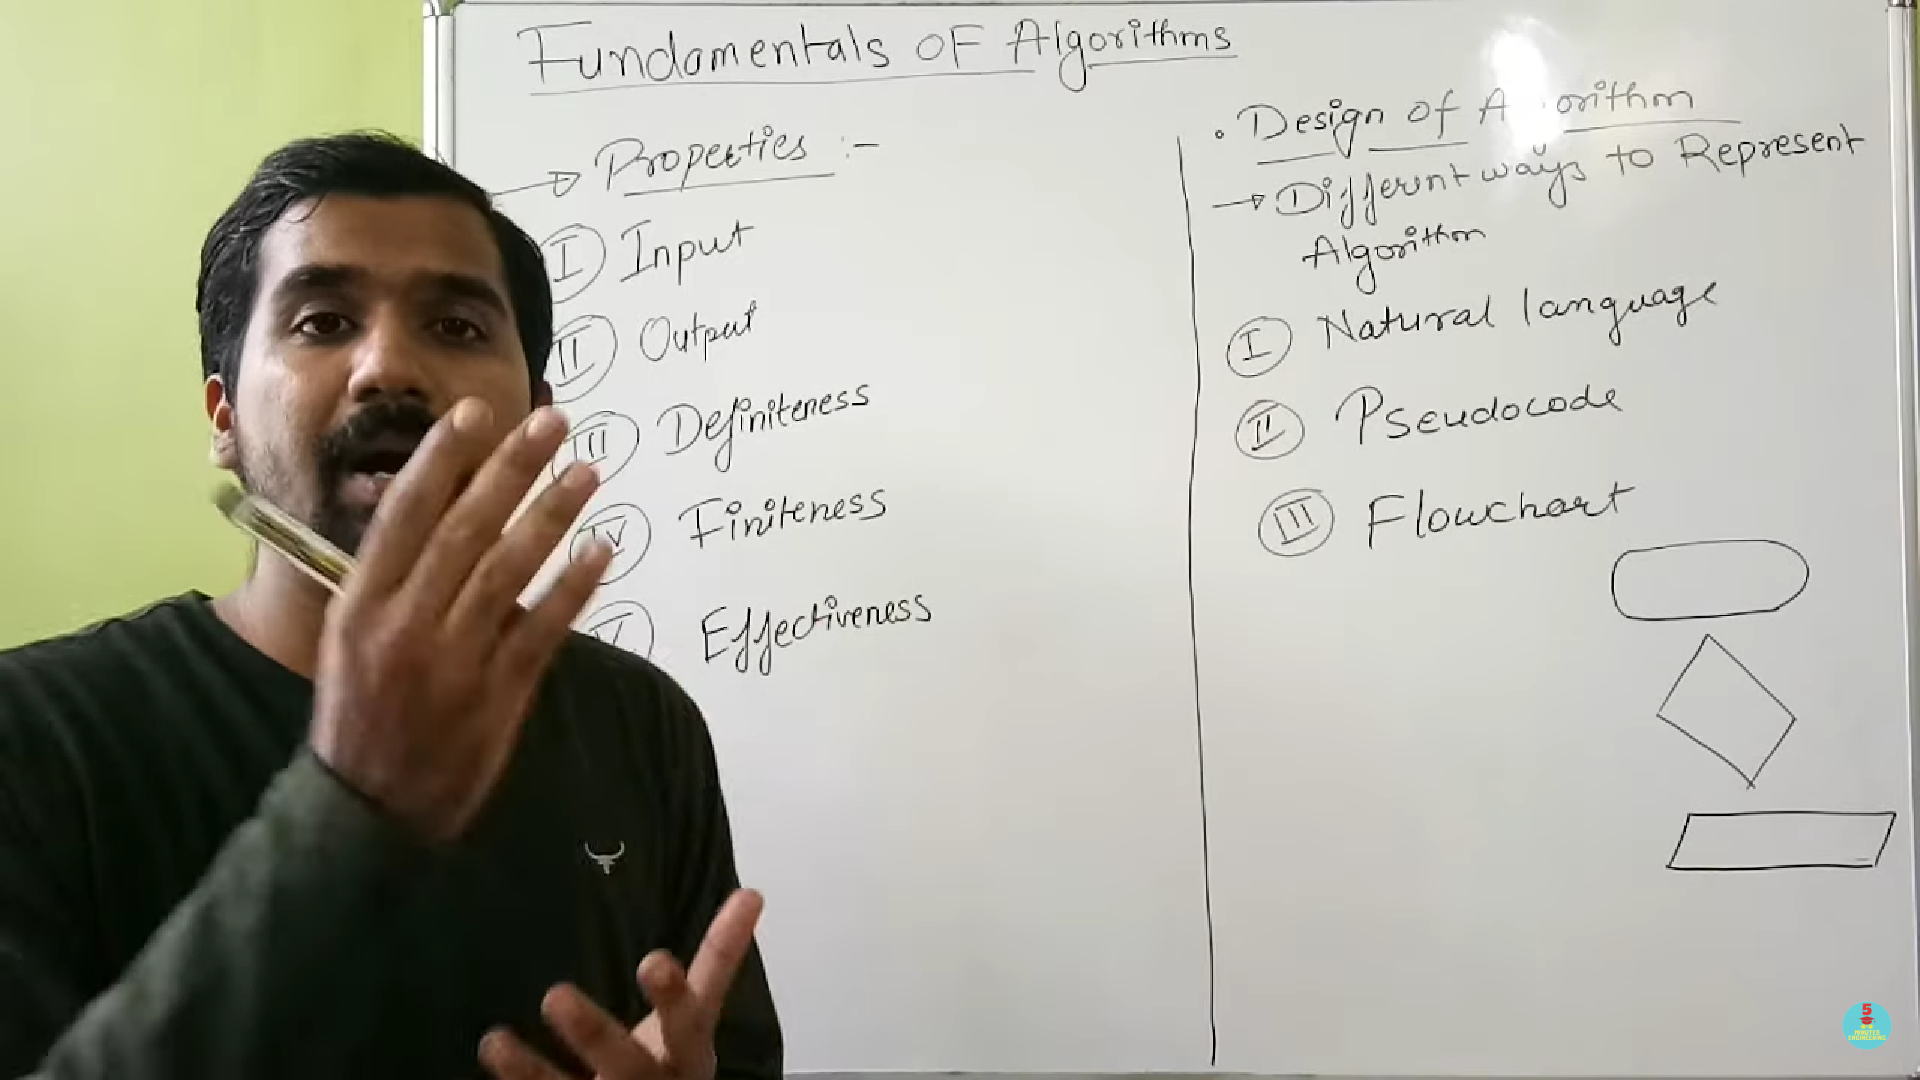 Fundamentals of Algorithms
→ Properties :-
I Input
II Output
III Definiteness
IV Finiteness
V Effectiveness
• Design of A orithm
→ Different ways to Represent
Algorithm
I Natural language
II Pseudocode
III Flowchart
5
MINUTES
ENGINEERING